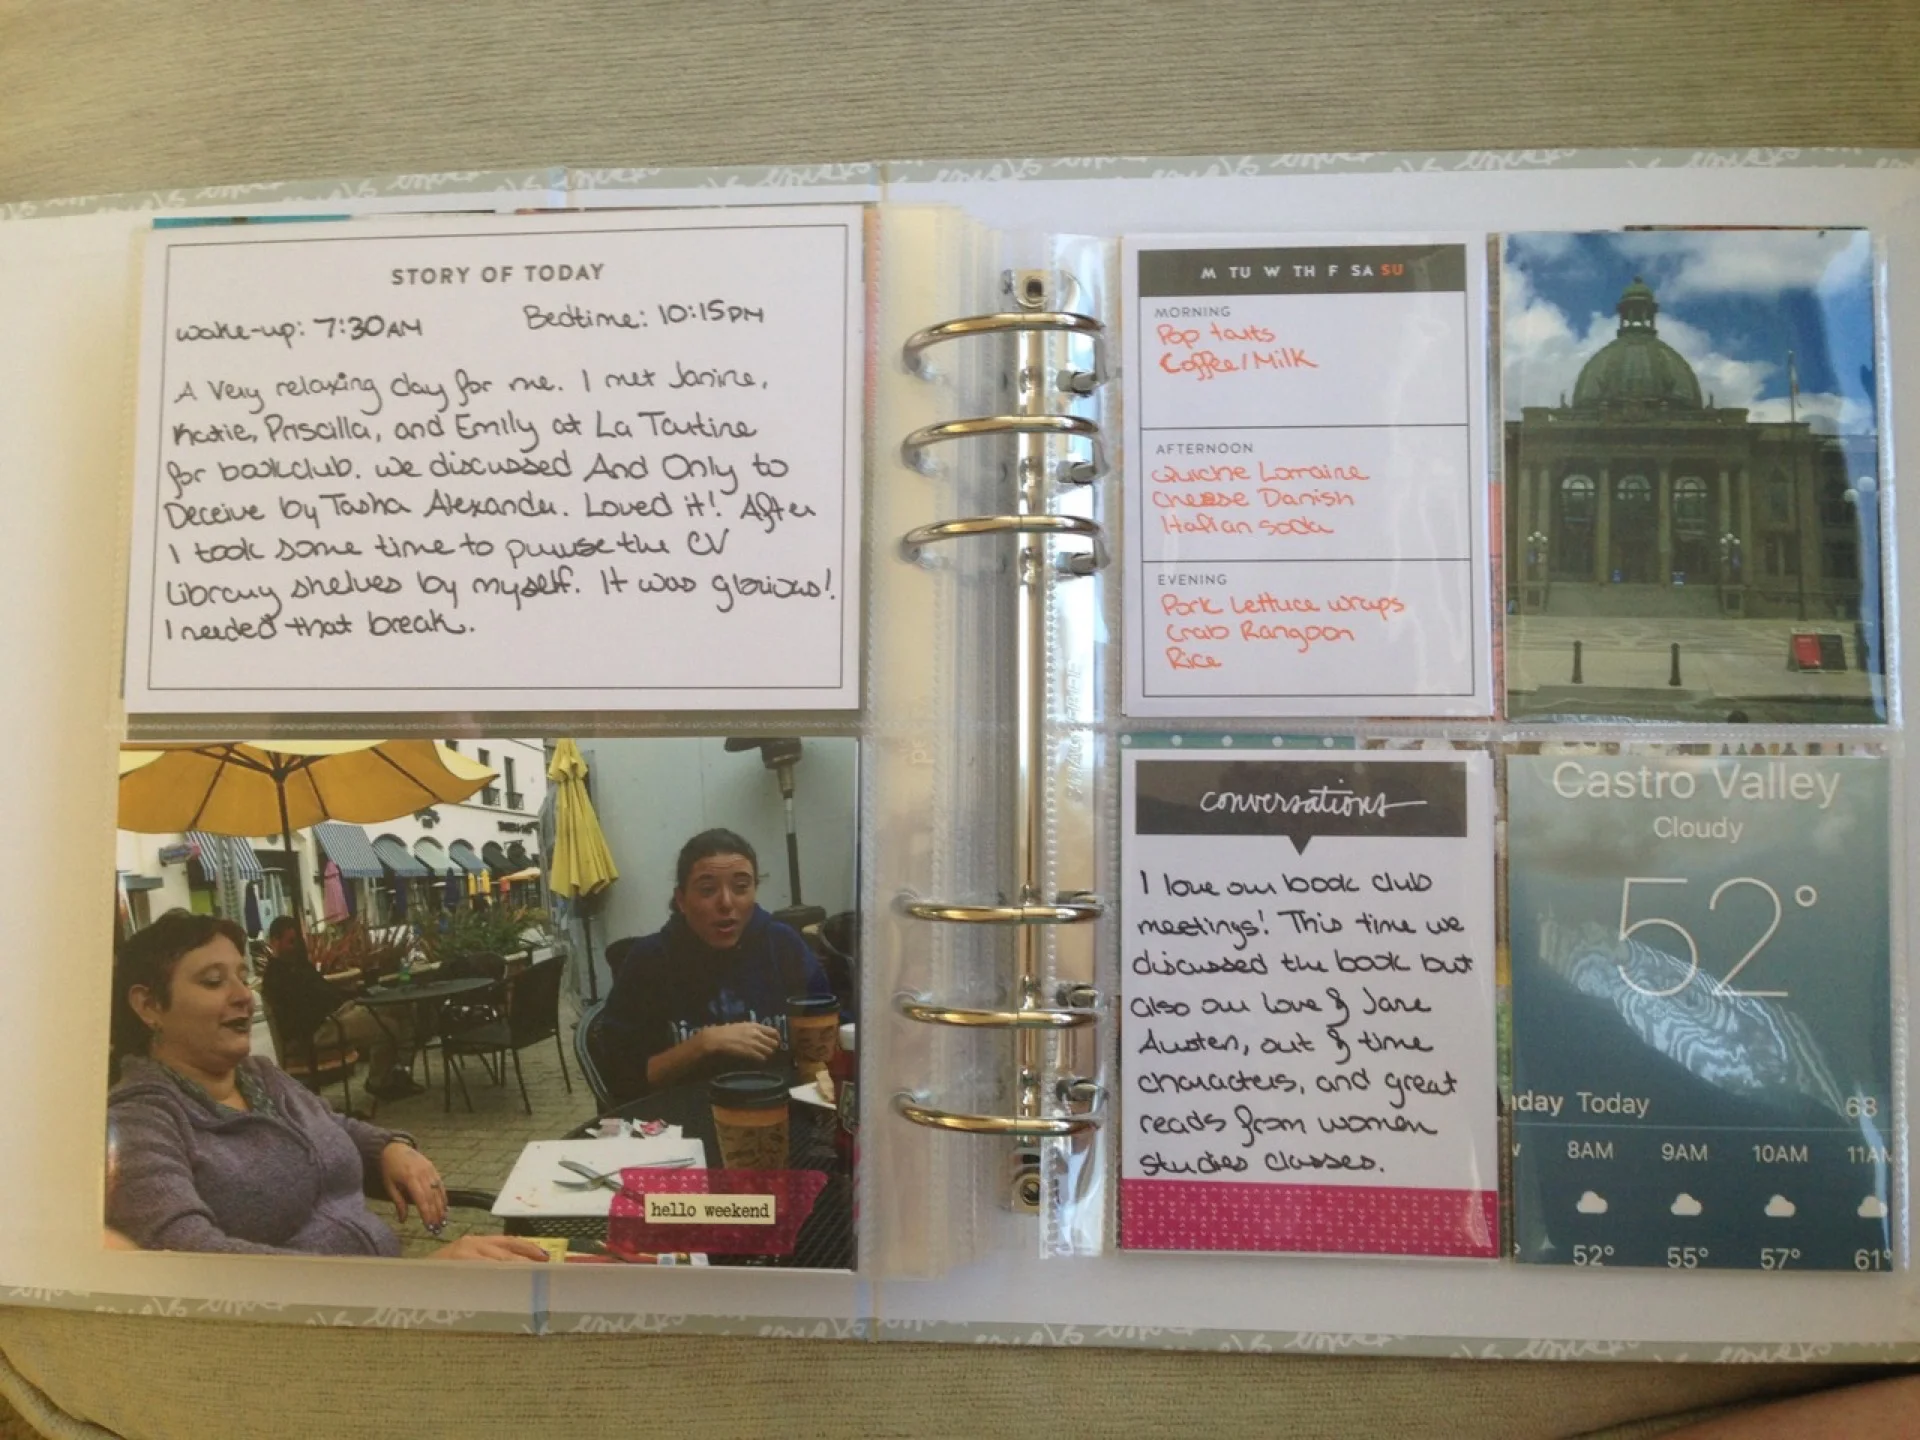 STORY OF TODAY
wake-up: 7:30AM Bedtime: 10:15PM
A Very relaxing day for me. I met Janine,
Katie, Priscilla, and Emily at La Tartine
for bookclub. We discussed And Only to
Deceive by Tasha Alexander. Loved it! After
I took some time to peruse the CV
Library shelves by myself. It was glorious!
I needed that break.
hello weekend
M TU W TH F SA SU
MORNING
Pop tarts
Coffee/Milk
AFTERNOON
Quiche Lorraine
Cheese Danish
Italian soda
EVENING
Pork Lettuce wraps
Crab Rangoon
Rice
conversations
I love our book club
meetings! This time we
discussed the book but
also our love of Jane
Austen, out of time
characters, and great
reads from women
studies classes.
Castro Valley
Cloudy
52°
nday Today 68
8AM 9AM 10AM 11AM
52° 55° 57° 61°